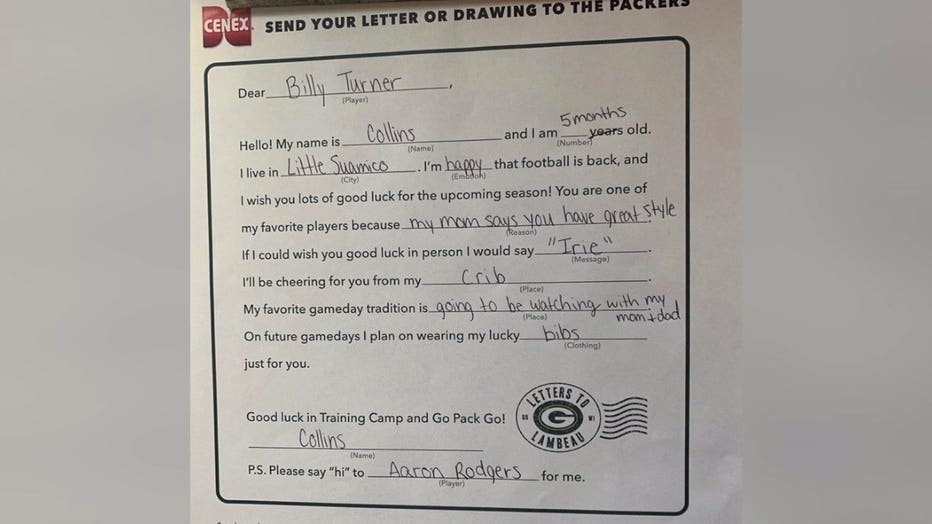 CENEX SEND YOUR LETTER OR DRAWING TO THE PACKERS
Dear Billy Turner,
(Player)
5 months
Hello! My name is Collins and I am years old.
(Name) (Number)
I live in Little Suamico. I'm happy that football is back, and
(City) (Emotion)
I wish you lots of good luck for the upcoming season! You are one of
my favorite players because my mom says you have great style.
(Reason)
If I could wish you good luck in person I would say "Irie".
(Message)
I'll be cheering for you from my Crib.
(Place)
My favorite gameday tradition is going to be watching with my
(Place) mom + dad
On future gamedays I plan on wearing my lucky bibs
(Clothing)
just for you.
LETTERS TO
GB WI
G
LAMBEAU
Good luck in Training Camp and Go Pack Go!
Collins
(Name)
P.S. Please say "hi" to Aaron Rodgers for me.
(Player)